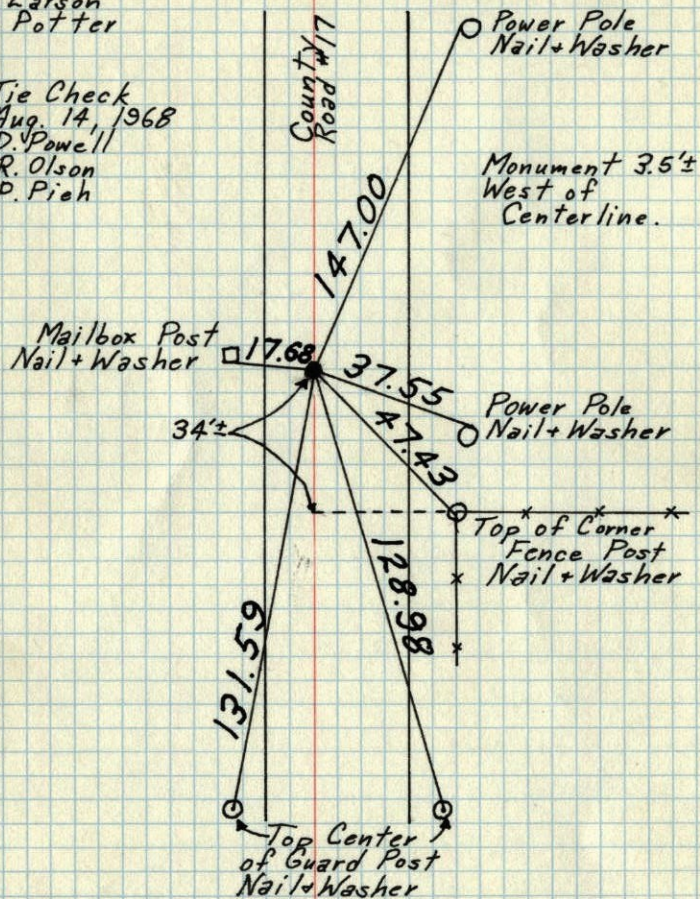 Larson
Potter
Tie Check
Aug. 14, 1968
D. Powell
R. Olson
D. Pieh
County
Road #17
Power Pole
Nail + Washer
Monument 3.5'±
West of
Centerline.
147.00
Mailbox Post
Nail + Washer
17.68
37.55
47.43
34'±
Power Pole
Nail + Washer
Top of Corner
Fence Post
Nail + Washer
128.98
131.59
Top Center
of Guard Post
Nail + Washer